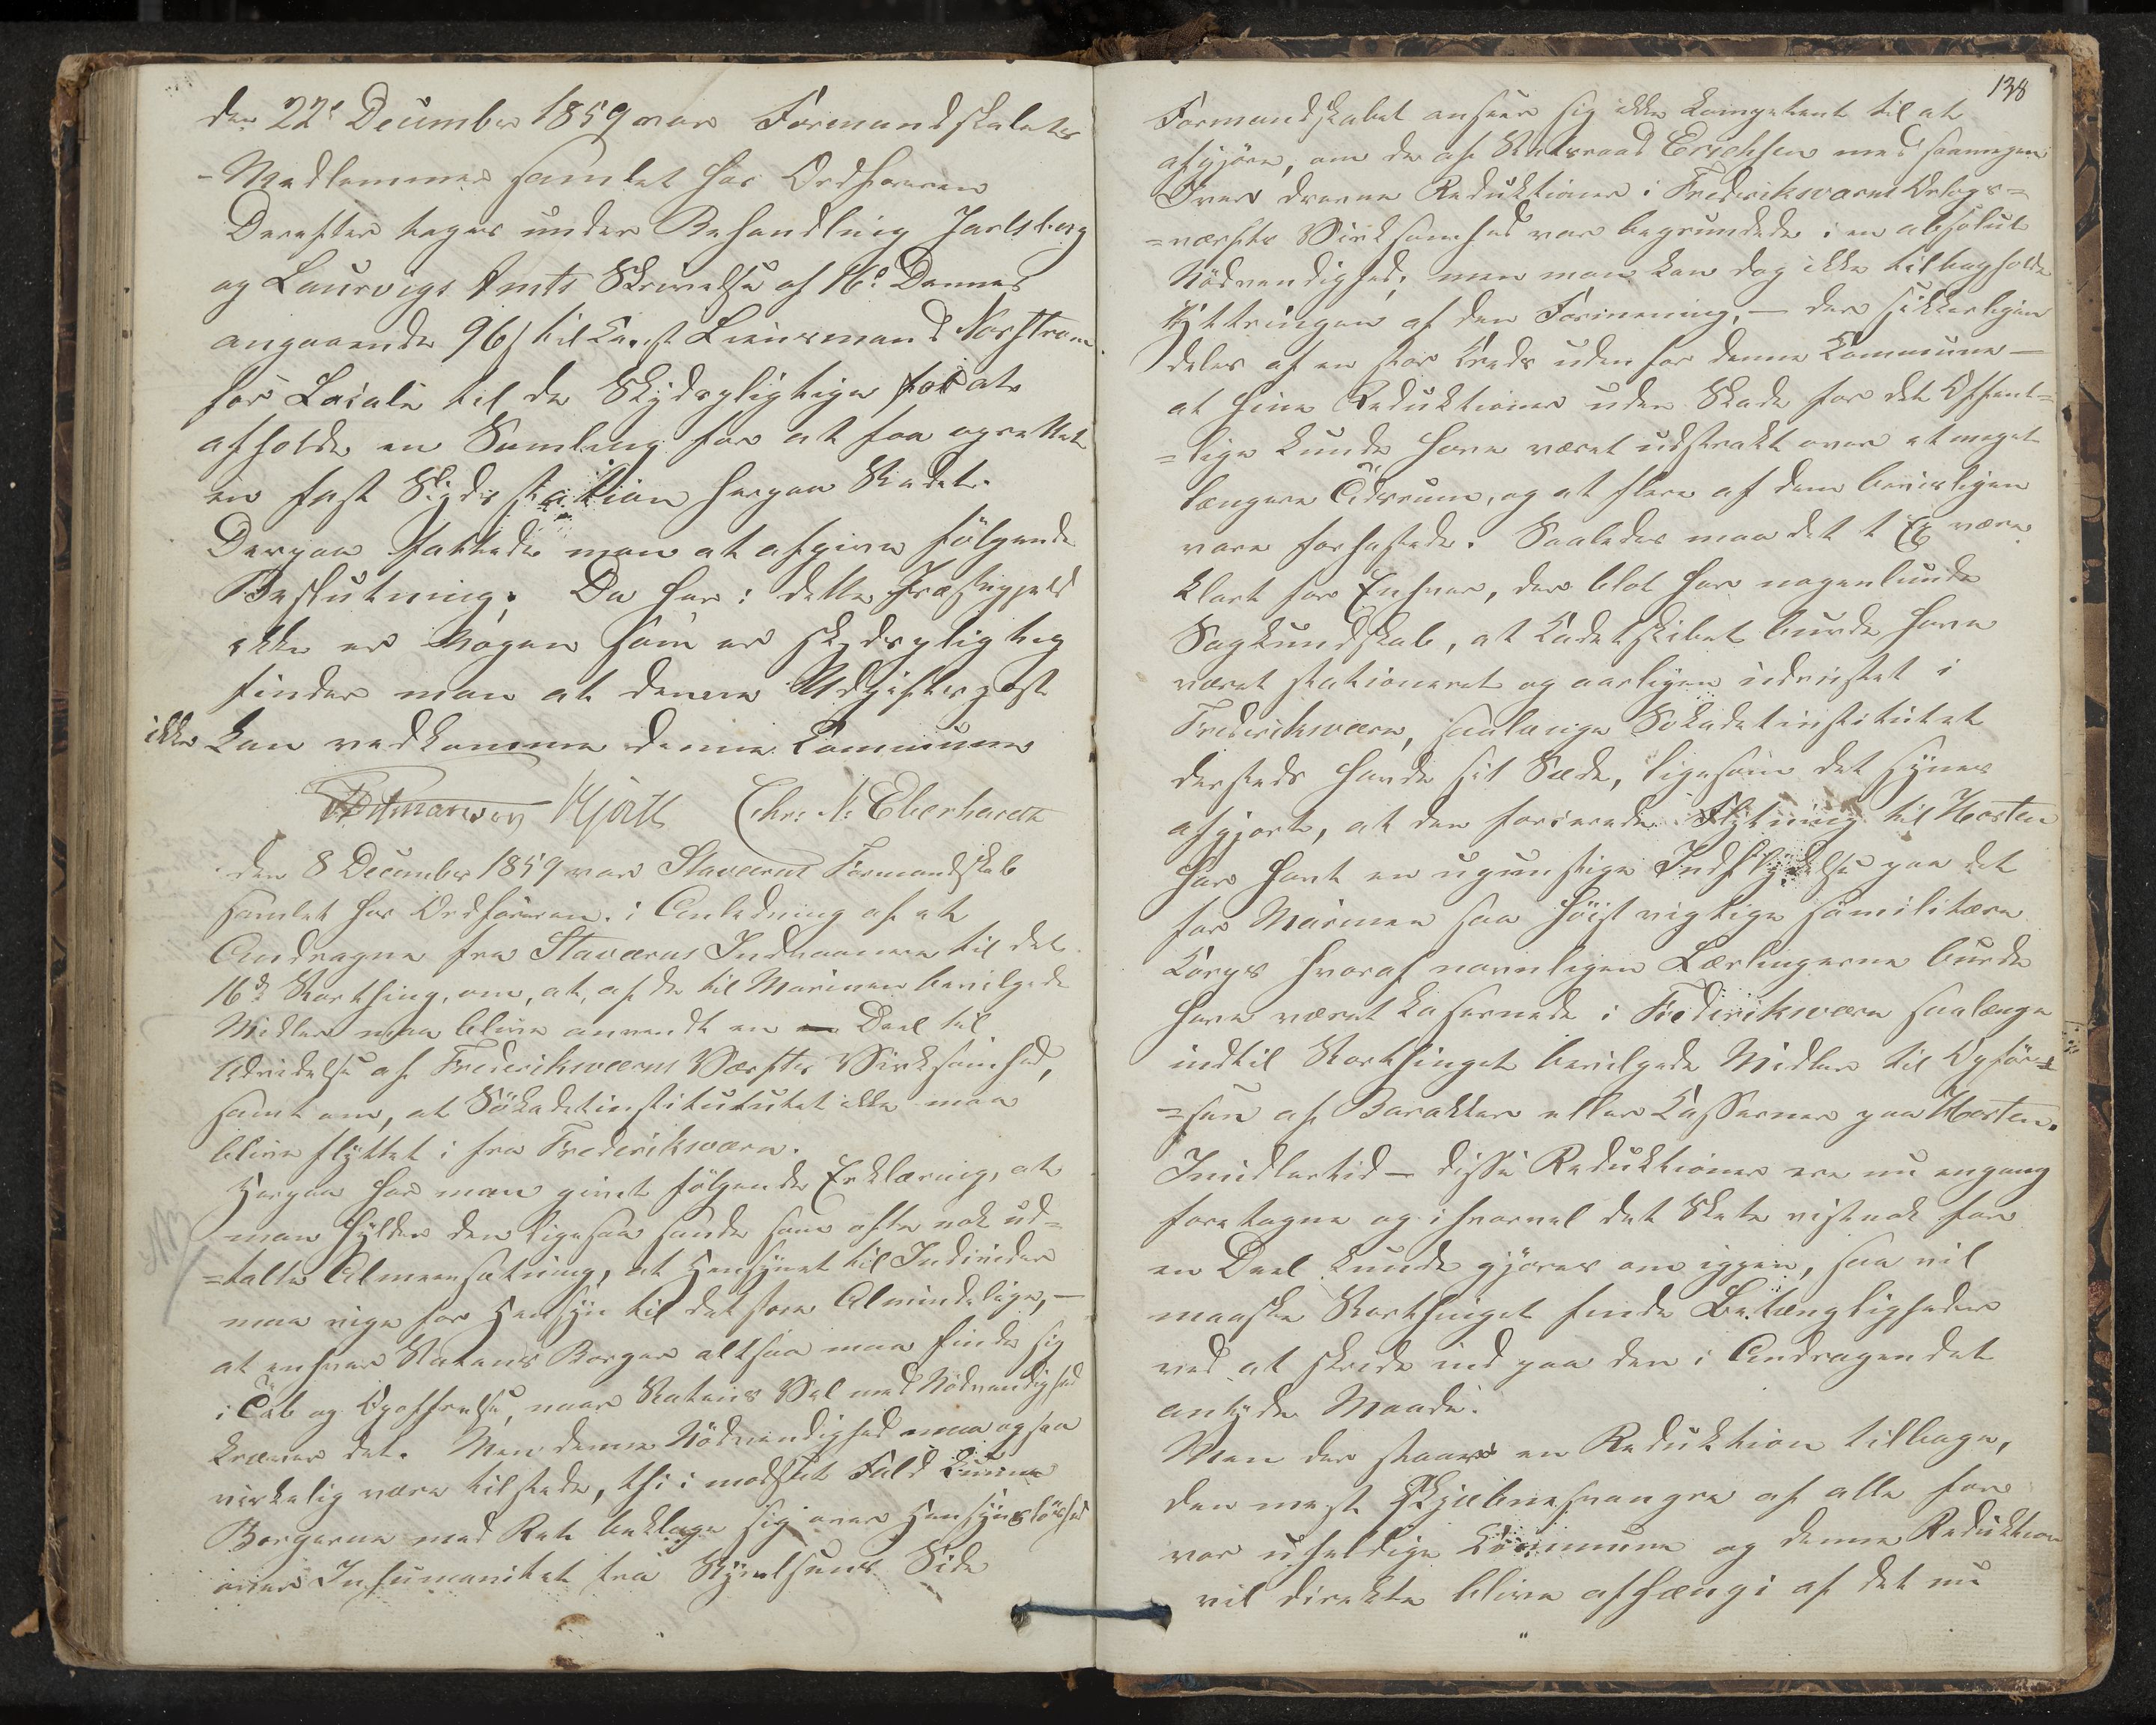 Den 22de December 1859 var Formandskabets
-Medlemmer samlet hos Ordføreren
Derefter toges under Behandling Jarlsberg
og Laurvigs Amts Skrivelse af 16de Dennes
angaaende 96 s til Const Lensmand Norstrøm
for Locale til de Skydspligtige for at
afholde en Samling for at faa oprettet
en fast Skydsstation herpaa Stedet.
Derpaa fattede man at afgive følgende
Beslutning. Da her i dette Præstegjeld
ikke er Nogen som er skydspligtig
finder man at denne Udgiftspost
ikke kan vedkomme denne Commune
Hjorth Chr: N: Eberhardt
Den 8 December 1859 var Staværns Formandskab
samlet hos Ordføreren i Anledning af et
Andragne fra Staværns Indvaanere til det
16de Storthing, om, at, af de til Marinen bevilgede
Midler maa blive anvendt en Deel til
Udvidelse af Frederiksværns Værfts Virksomhed,
samt om, at Søkadetinstitututet ikke maa
blive flyttet i fra Frederiksværn.
Herpaa har man givet følgende Erklæring, at
NB
man hylder den ligesaa sande som ofte nok ud=
=talte Almeensætning, at Hensynet til Individer
maa vige for Hensyn til det store Almindelige, —
at enhver Statens Borger altsaa maa finde sig
i Tab og Opoffrelse, naar Statens Vel med Nødvendighed
kræver det. Men denne Nødvendighed maa ogsaa
virkelig være tilstede, thi i modsat Fald kunne
Borgerne med Ret beklage sig over Hensynsløshed
over Inhumanitet fra Styrelsens Side
138
Formandskabet anseer sig ikke kompetent til at
afgjøre, om de af Statsraad Erichsen med saamegen
Iver drevne Reduktioner i Frederiksværns Orlogs=
=værfts Virksomhed var begrundede i en absolut
Nødvendighed; men man kan dog ikke tilbageholde
Yttringen af den Formening, — der sikkerligen
deles af en stor Kreds uden for denne Commune —
at hine Reduktioner uden Skade for det Offent=
=lige kunde have været udstrakt over et meget
længere Tidsrum, og at flere af dem beviisligen
vare forhastede. Saaledes maa det t Ex være
klart for Enhver, der blot har nogenlunde
Sagkundskab, at Kadetskibet burde have
været stationeret og aarligen udrustet i
Frederiksværn, saalænge Søkadetinstitutet
dersteds havde sit Sæde, ligesom det synes
afgjort, at den forcerede Flytning til Horten
har havt en ugunstige Indflydelse paa det
for Marinen saa høist vigtige sømilitære
Korps hvoraf navnligen Lærlingerne burde
have været kasernede i Frederiksværn saalænge
indtil Storthinget bevilgede Midler til Opfør=
=sen af Barakker eller Casserner paa Horten.
Imidlertid — disse Reduktioner ere nu engang
foretagne og ihvorvel det Skete vistnok for
en Deel kunde gjøres om igjen, saa vil
maaske Storthinget finde Betænkligheder
ved at skride ind paa den i Andragendet
antyde Maade.
Men der staaer en Reduktion tilbage,
den mest skjæbnesvangre af alle for
vor uheldige Commune og denne Reduktion
vil direkte blive afhængi af det nu